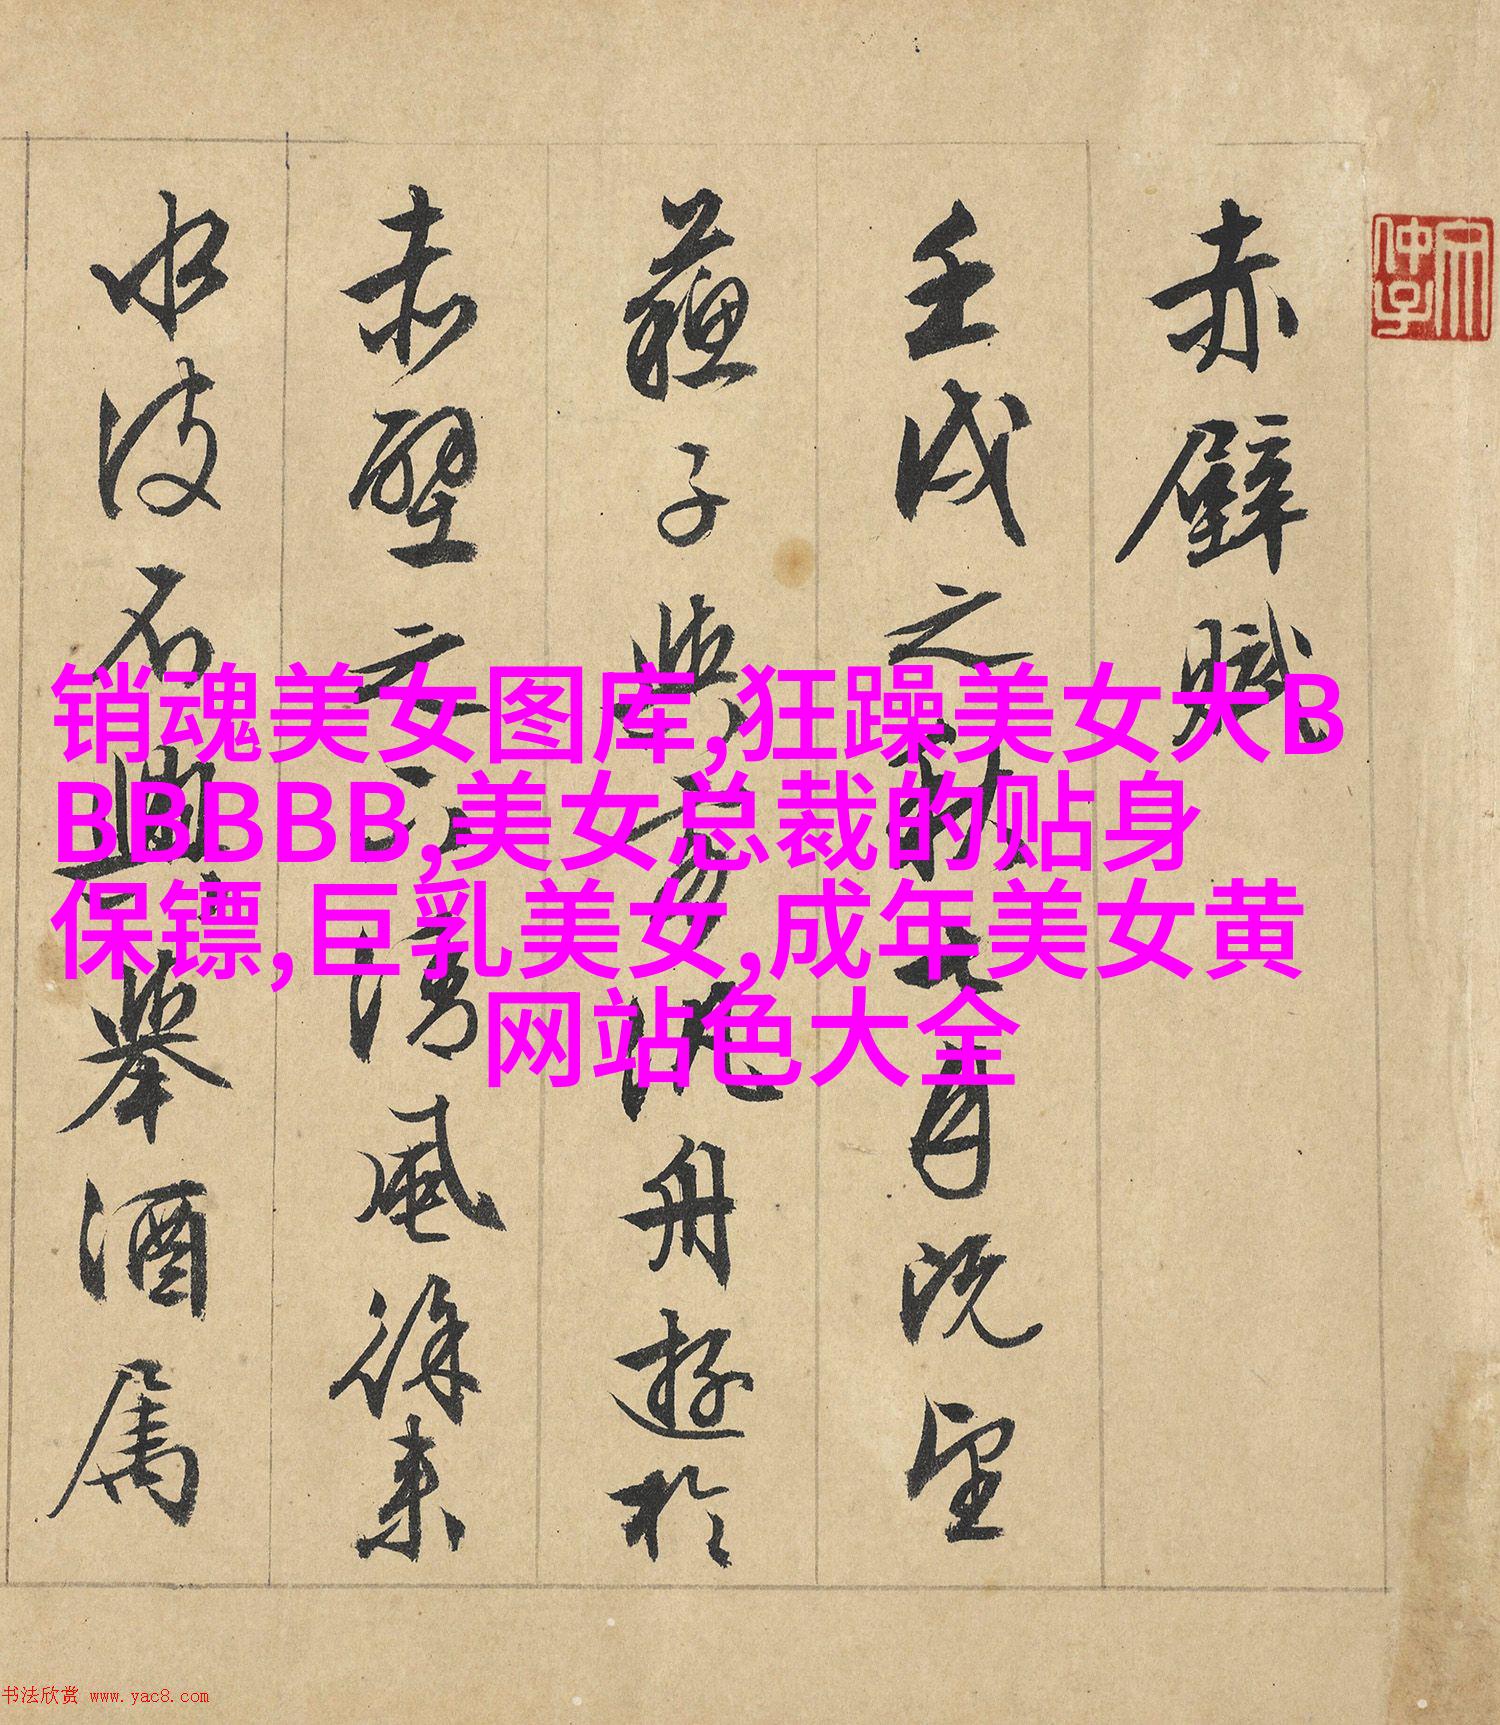 赤壁賦
壬戌之秋七月既望
蘇子與客泛舟遊於
赤壁之下清風徐來
水波不興舉酒屬
销魂美女图库,狂躁美女大B
BBBBB,美女总裁的贴身
保镖,巨乳美女,成年美女黄
网站色大全
书法欣赏 www.yac8.com